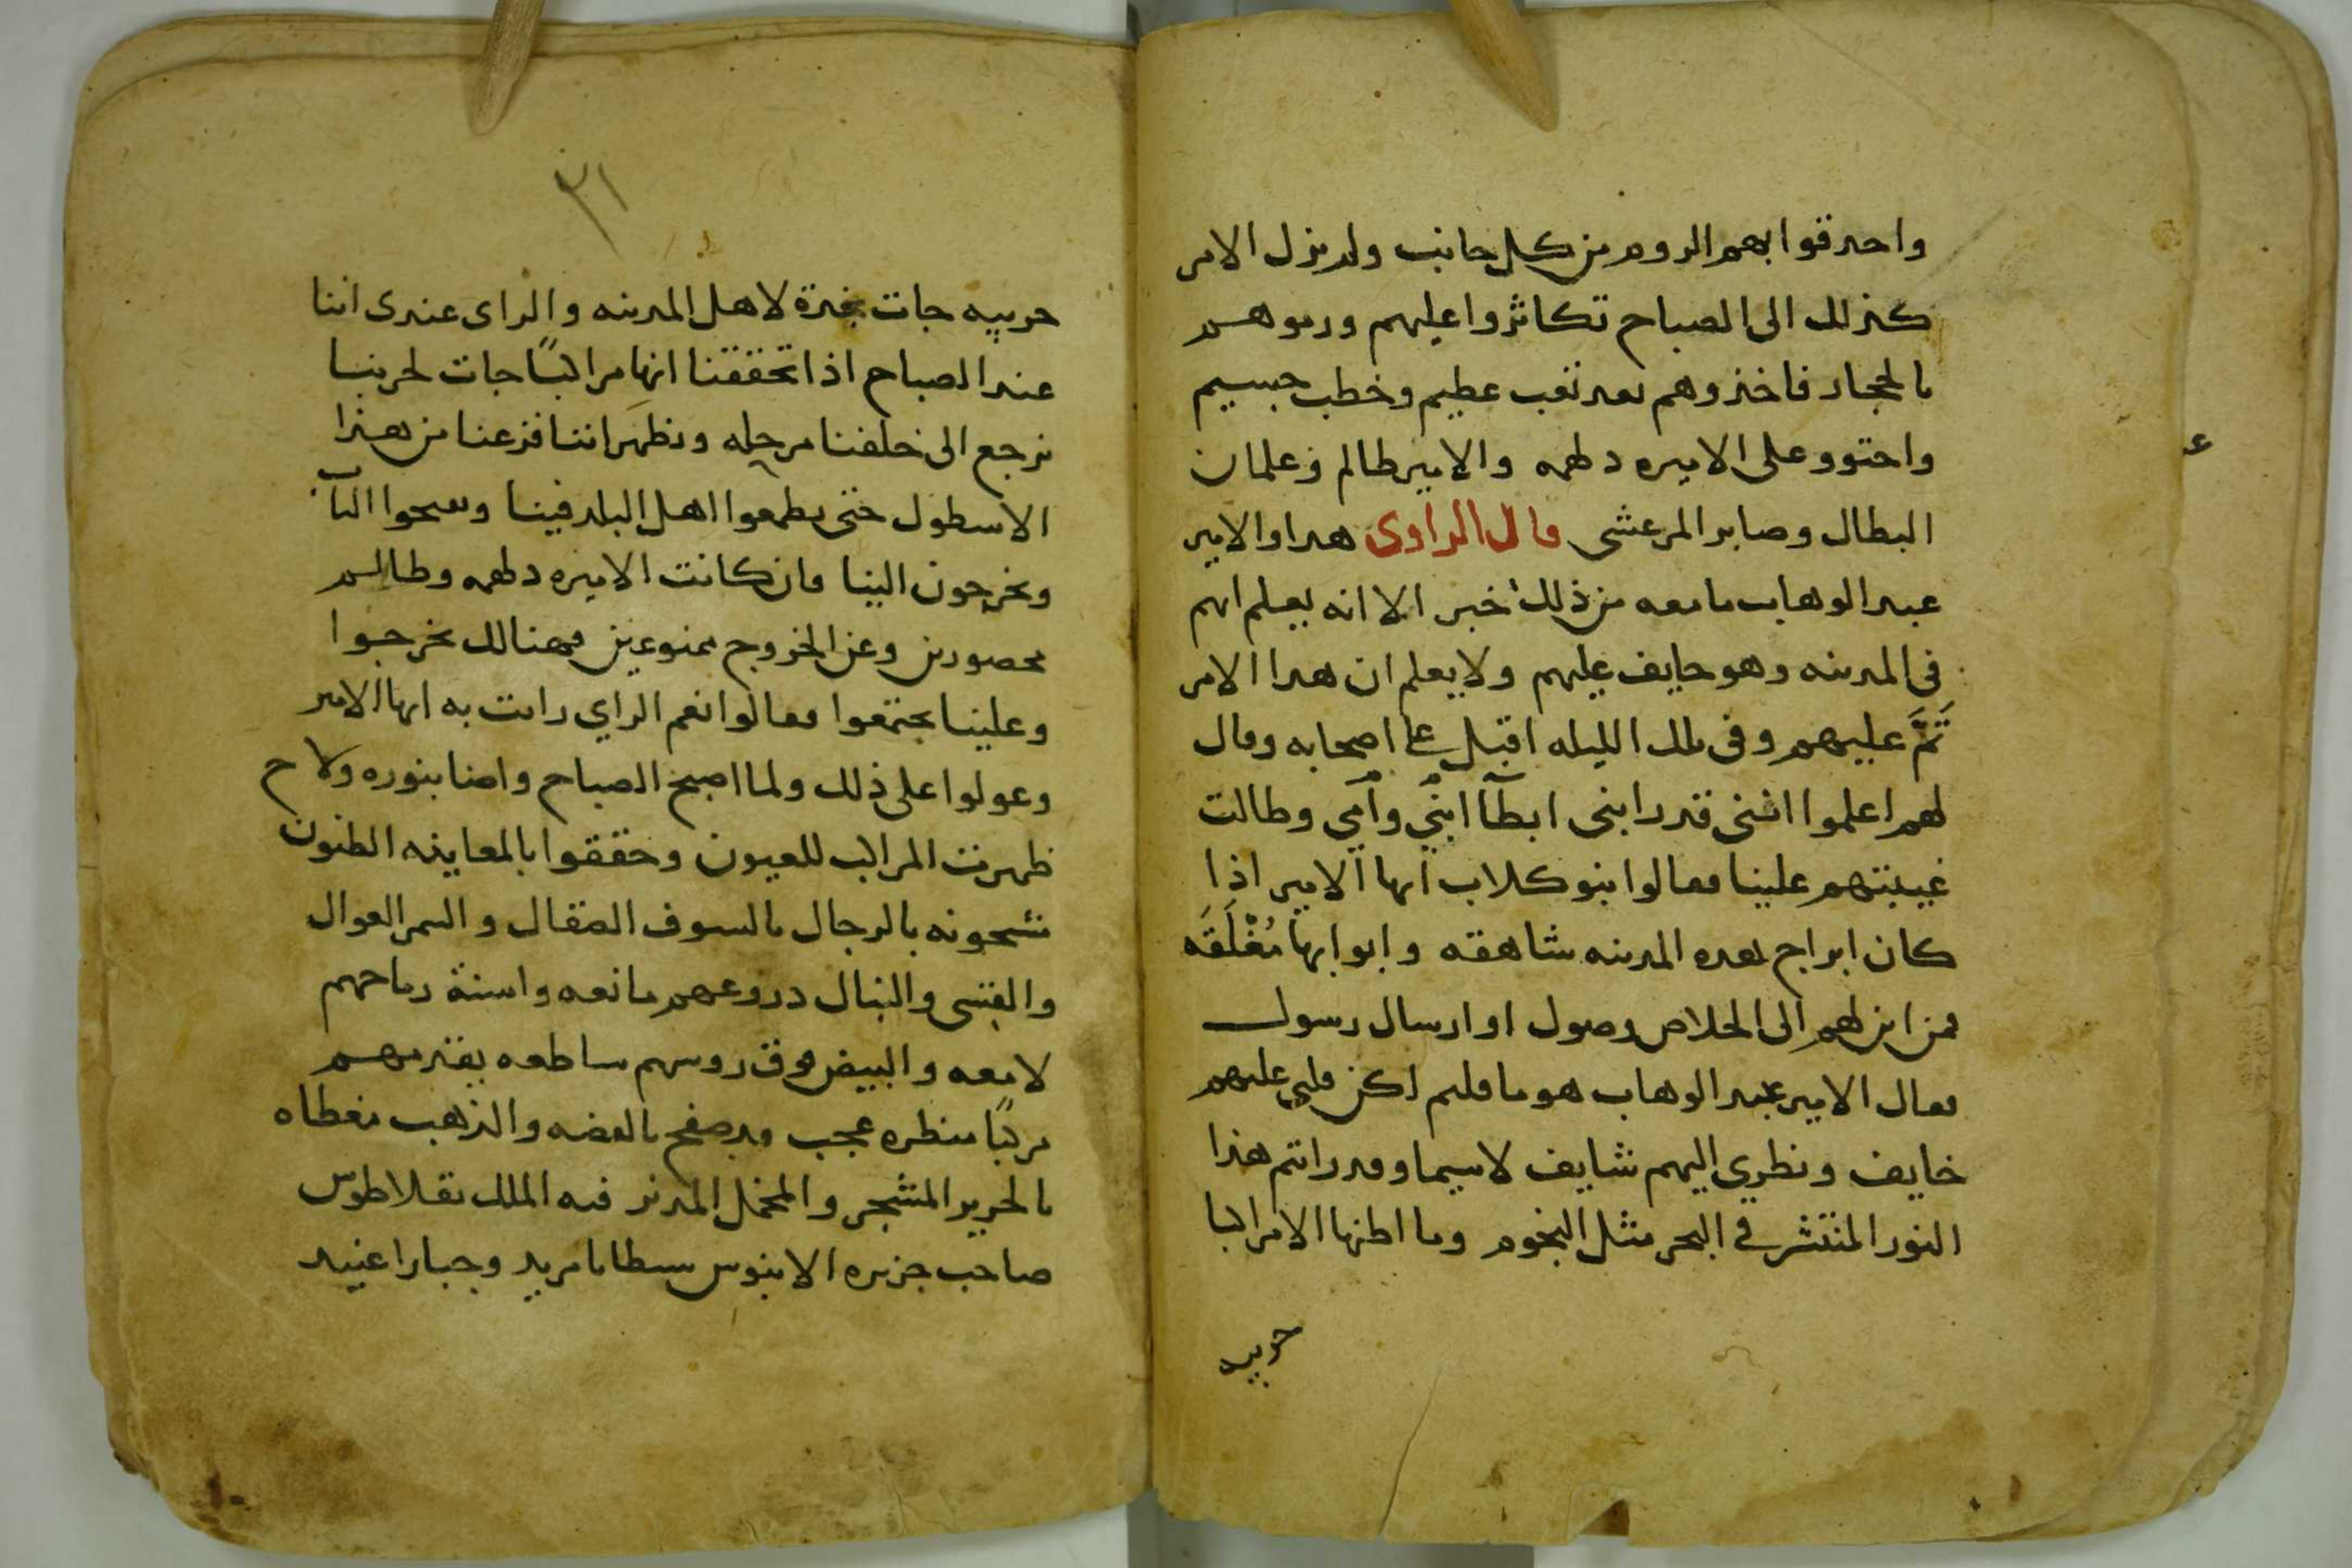 واحدقوا بهم الروم من كل جانب ولم يزل الامر
كذلك الى الصباح تكاثروا عليهم ورموهم
بالحجار فاخذوهم بعد تعب عظيم وخطب جسيم
واحتوو على الاميره دلهمه والامير ظالم وغلمان
البطال وصابر المرعشى قال الراوى هدا والامير
عبد الوهاب ما معه من ذلك خبر الا انه يعلم انهم
فى المدينه وهو خايف عليهم ولا يعلم ان هدا الامر
تَمَّ عليهم وفى تلك الليله اقبل على اصحابه وقال
لهم اعلموا اننى قد رابنى ابطآ ابنى وآمي وطالت
غيبتهم علينا فقالوا بنو كلاب ايها الامير اذا
كان ابراج هده المدينه شاهقه وابوابها مُغْلَقَه
فمن اين لهم الى الخلاص وصول او ارسال رسول
فقال الامير عبد الوهاب هو ما قلتم لكن قلبي عليهم
خايف ونظري اليهم شايف لاسيما وقد رايتم هذا
النور المنتشر في البحر مثل النجوم وما اظنها الا مراكبا
حربيه
٣١
حربيه جات نجدة لاهل المدينه والراى عندى اننا
عند الصباح اذا تحققنا انها مراكبًا جات لحربنا
نرجع الى خلفنا مرحله ونظهَر اننا فزعنا من هذا
الاسطول حتى يطمعوا اهل البلد فينا ويفتحوا الباب
ويخرجون الينا فان كانت الاميره دلهمه وظالم
محصورين وعن الخروج ممنوعين فهنالك يخرجوا
وعلينا يجتمعوا فقالوا نعم الراي رايت به ايها الامير
وعولوا على ذلك ولما اصبح الصباح واضا بنوره ولاح
ظهرت المراكب للعيون وحققوا بالمعاينه الظنون
مشحونه بالرجال بالسيوف الصقال والسمر العوال
والقسى والنبال دروعهم مانعه واسنة رماحهم
لامعه والبيض فوق روسهم ساطعه يقدمهم
مركبًا منظره عجيب قد صفح بالفضه والذهب مغطاه
بالحرير المشجر والمخمل المدنر فيه الملك بقلاطوس
صاحب جزيره الابنوس شيطانا مريد وجبارا عنيد